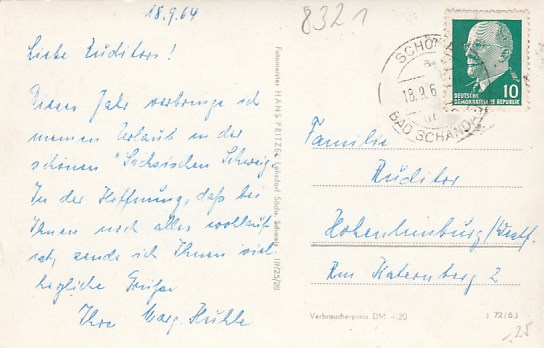 18.9.64
8321
Liebe Ruditors!
Dieses Jahr verbringe ich
meinen Urlaub in der
schönen "Sächsischen Schweiz.
In der Hoffnung, daß bei
Ihnen noch alles wohlauf
ist, sende ich Ihnen viel
herzliche Grüße
Ihre Marg. Kuhle
Fotomeister HANS PRITZEL Lohsdorf Sächs. Schweiz III/25/28
SCHÖNA
18.9.6
BAD SCHANDAU
DEUTSCHE
DEMOKRATISCHE REPUBLIK
10
Familie
Ruditor
Hohenlimburg/Westf.
Am Katernberg 2
Verbraucherpreis DM -.20
J 72/63
1.25